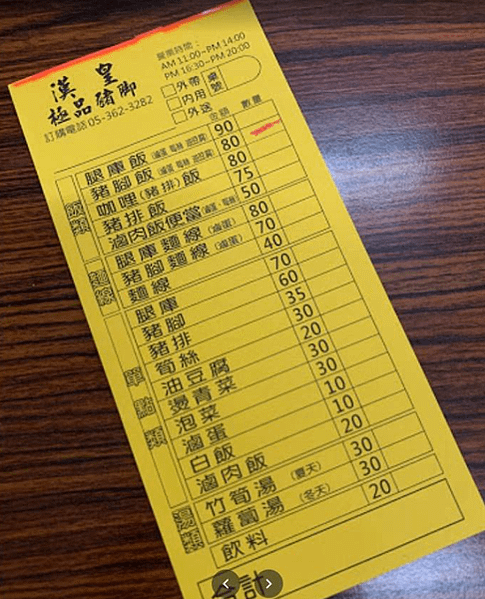 漢皇
極品豬脚
訂購電話05-362-3282
營業時間：
AM 11:00~PM 14:00
PM 16:30~PM 20:00
□外帶 桌號
□內用
□外送
金額 數量
飯類
腿庫飯 90
豬腳飯 80
咖哩(豬排)飯 80
豬排飯 75
滷肉飯便當 50
麵線
腿庫麵線(滷蛋) 80
豬腳麵線(滷蛋) 70
麵線 40
單點類
腿庫 70
豬腳 60
豬排 35
筍絲 30
油豆腐 20
燙青菜 30
泡菜 30
滷蛋 10
白飯 10
滷肉飯 20
湯類
竹筍湯(夏天) 30
蘿蔔湯(冬天) 30
飲料 20